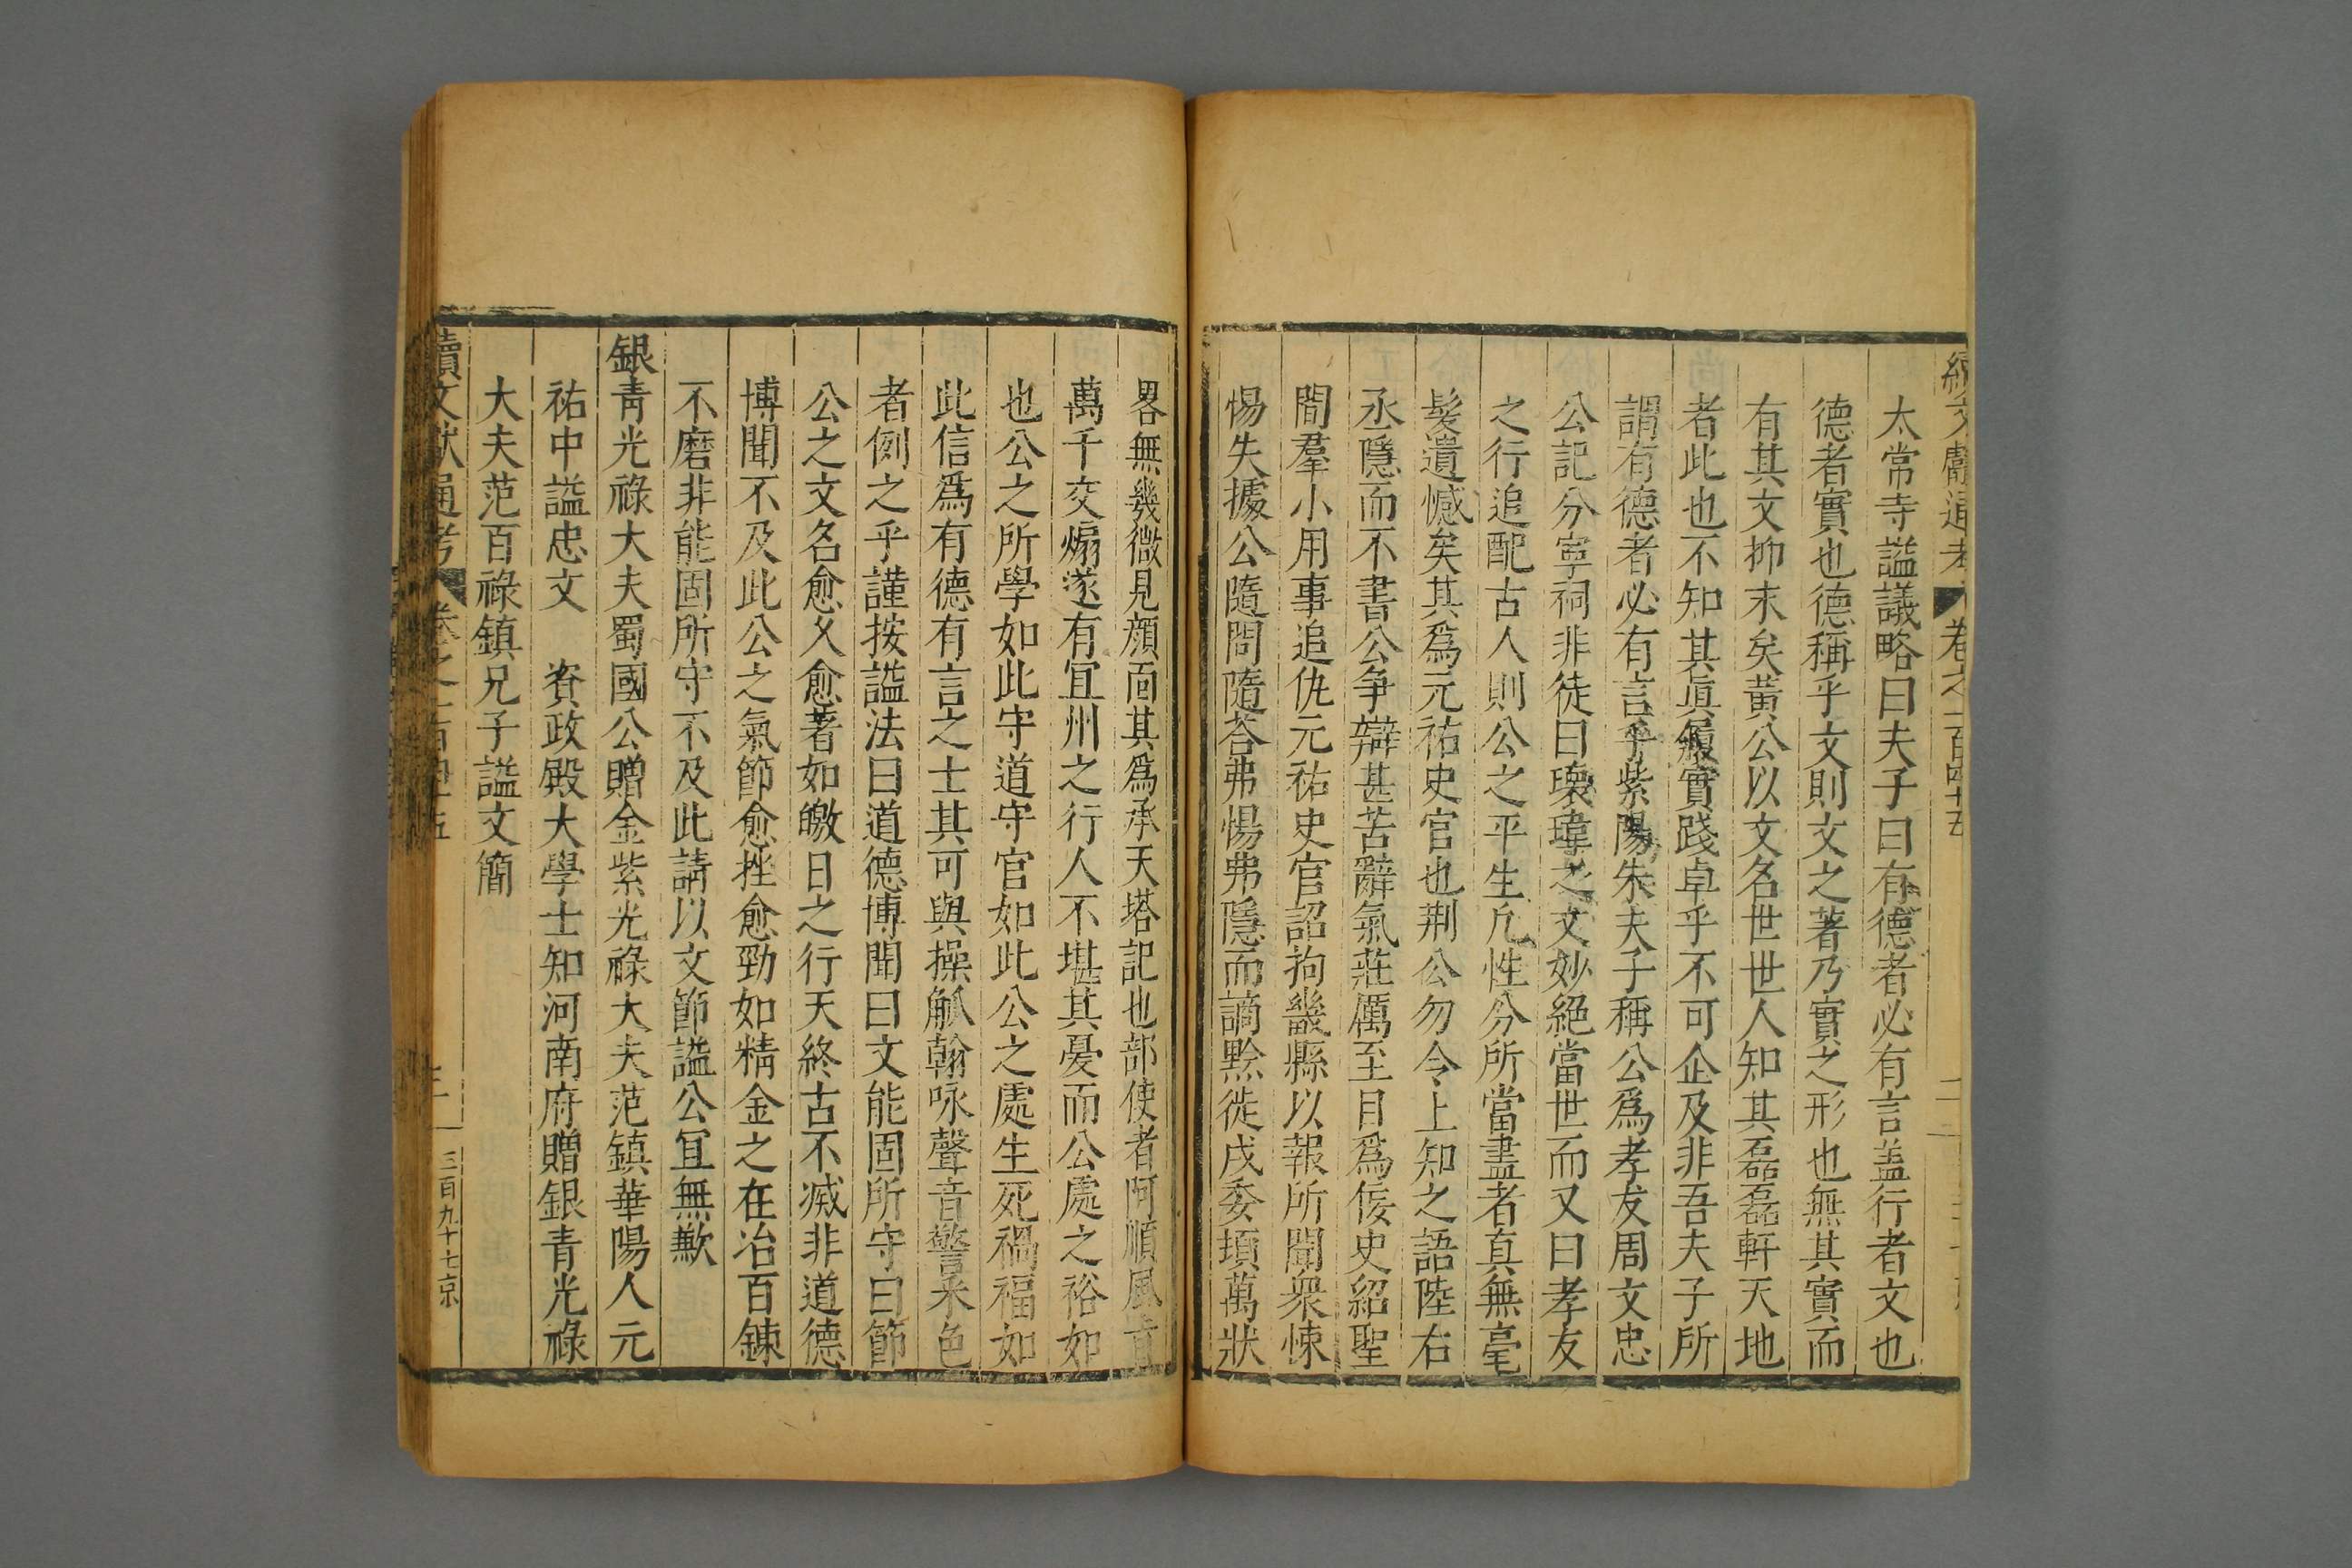 續文獻通考 卷之一百四十五 二
太常寺謚議略曰夫子曰有德者必有言盖行者文也
德者實也德稱乎文則文之著乃實之形也無其實而
有其文抑末矣黃公以文名世世人知其磊磊軒天地
者此也不知其眞履實踐卓乎不可企及非吾夫子所
謂有德者必有言乎紫陽朱夫子稱公爲孝友周文忠
公記分寧祠非徒曰瓌瑋之文妙絕當世而又曰孝友
之行追配古人則公之平生凢性分所當盡者真無毫
髮遺憾矣其爲元祐史官也荆公勿令上知之語陸右
丞隱而不書公争辯甚苦辭氣莊厲至目爲佞史紹聖
間羣小用事追仇元祐史官詔拘畿縣以報所聞衆悚
惕失據公隨問隨荅弗惕弗隱而謫黔徙戍委頓萬狀
畧無幾微見顔面其爲承天塔記也部使者阿順風旨
萬千交煽遂有宜州之行人不堪其憂而公處之裕如
也公之所學如此守道守官如此公之處生死禍福如
此信爲有德有言之士其可與操觚翰咏聲音警采色
者例之乎謹按謚法曰道德博聞曰文能固所守曰節
公之文名愈乆愈著如皦日之行天終古不㓕非道德
博聞不及此公之氣節愈挫愈勁如精金之在冶百鍊
不磨非能固所守不及此請以文節謚公冝無歉
銀青光祿大夫蜀國公贈金紫光祿大夫范鎮華陽人元
祐中謚忠文　資政殿大學士知河南府贈銀青光祿
大夫范百祿鎮兄子謚文簡
續文獻通考 卷之一百四十五 三百九十七京